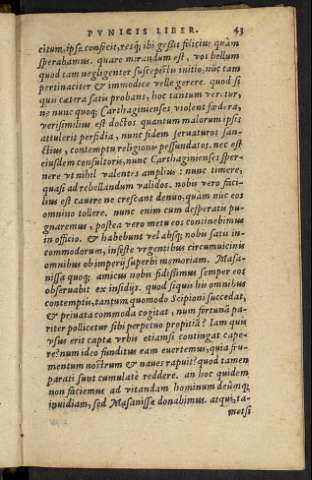 PVNICIS LIBER. 43
citum, ipse conficit, resq; ibi gessit filicius quàm
sperabamus. quare mirandum est, vos bellum
quod tam negligenter susceptũ initio, nũc tam
pertinaciter & immodice velle gerere. quod si
qui cætera satis probant, hoc tantum veretur,
ne nunc quoq; Carthaginenses violent fœdera,
verisimilius est doctos quantum malorum ipsis
attulerit perfidia, nunc fidem seruaturos san-
ctius, contemptu religionũ pessundatos. nec est
eiusdem consultoris, nunc Carthaginenses sper-
nere vt nihil valentes amplius: nunc timere,
quasi ad rebellandum validos. nobis vero faci-
lius est cauere ne crescant denuo, quàm nũc eos
omnino tollere. nunc enim cum desperatis pu-
gnaremus, postea vero metu eos continebimus
in officio. & habebunt vel absq; nobis satis in-
commodorum, infestis vrgentibus circumuicinis
omnibus ob imperij superbi memoriam. Masa-
nissa quoq; amicus nobis fidissimus semper eos
obseruabit ex insidijs. quod si quis his omnibus
contemptis, tantum quomodo Scipioni succedat,
& priuata commoda cogitat, num fortunã pa-
riter pollicetur sibi perpetuo propitiã? Iam quis
vsus erit captæ vrbis etiamsi contingat cape-
re? num ideo funditus eam euertemus, quia fru-
mentum nostrum & naues rapuit? quod tamen
parati sunt cumulatè reddere. an hoc quidem
non faciemus ad vitandam hominum deũmq;
inuidiam, sed Masanissæ donabimus. atqui, ta-
metsi